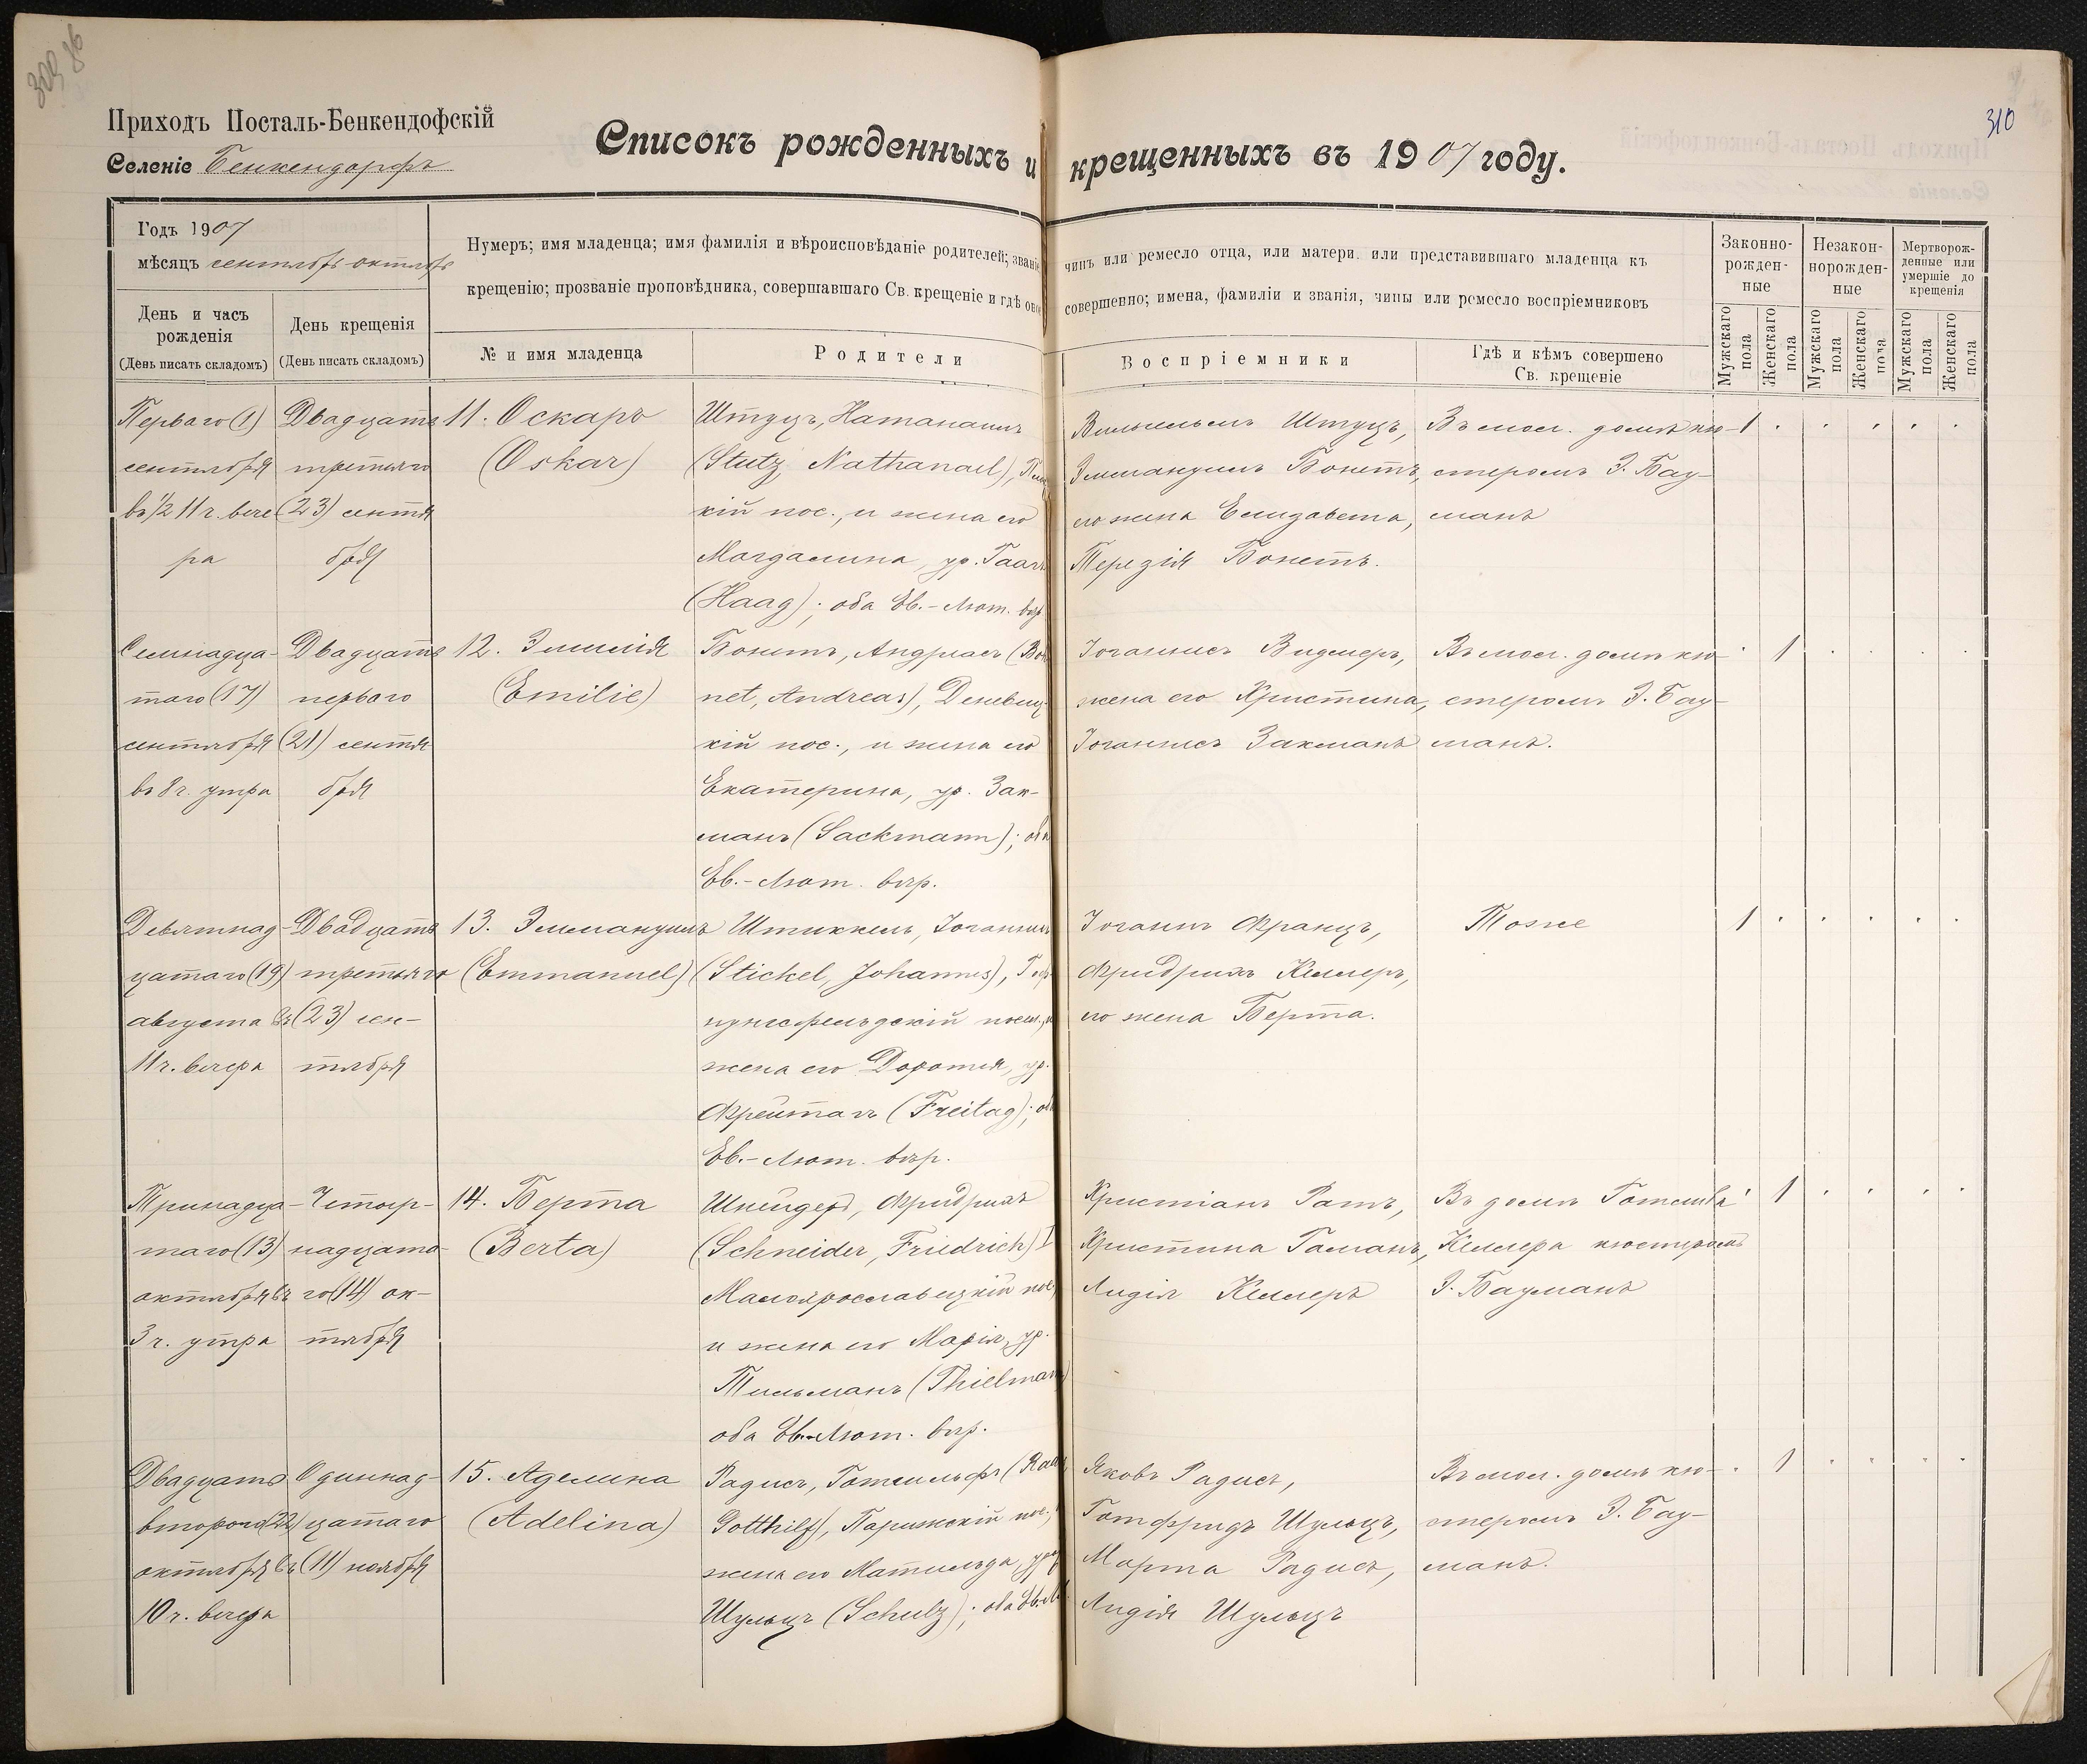 309 86
310
Приходъ Посталь-Бенкендофскій
Селеніе Бенкендорфъ
Списокъ рожденныхъ и крещенныхъ въ 1907 году.
Годъ 1907
мѣсяцъ сентябрь-октябрь
День и часъ
рожденія
(День писать складомъ)
День крещенія
(День писать складомъ)
Нумеръ; имя младенца; имя фамилія и вѣроисповѣданіе родителей; званіе
крещенію; прозваніе проповѣдника, совершавшаго Св. крещеніе и гдѣ оное
№ и имя младенца
Родители
чинъ или ремесло отца, или матери. или представившаго младенца къ
совершенно; имена, фамиліи и званія, чины или ремесло воспріемниковъ
Воспріемники
Гдѣ и кѣмъ совершено
Св. крещеніе
Законно-
рожден-
ные
Незакон-
норожден-
ные
Мертворож-
денные или
умершіе до
крещенія
Мужскаго
пола
Женскаго
пола
Мужскаго
пола
Женскаго
пола
Мужскаго
пола
Женскаго
пола
Перваго (1)
сентября
въ ½ 11 ч. вече
ра
Двадцать
третьяго
(23) сентя
бря
11. Оскаръ
(Oskar)
Штуцъ, Натанаилъ
(Stutz, Nathanael),
кій пос., и жена его
Магдалина, ур. Гаагъ
(Haag); оба Ев.-Лют. вѣр.
Вильгельмъ Штуцъ,
Эммануилъ Бонетъ,
его жена Елизавета,
Терезія Бонетъ.
Въ мол. домѣ кю-
стеромъ Э. Бау-
манъ
1
Семнадца-
таго (17)
сентября
въ 8 ч. утра
Двадцать
перваго
(21) сентя
бря
12. Эмилія
(Emilie)
Бонетъ, Андреасъ (Bon
net, Andreas), Деневиц-
кій пос., и жена его
Екатерина, ур. Зак-
манъ (Sackmann); оба
Ев.-Лют. вѣр.
Іоганнесъ Видмеръ,
жена его Христина,
Іоганнесъ Закманъ
Въ мол. домѣ кю-
стеромъ Э. Бау-
манъ.
1
Девятнад-
цатаго (19)
августа въ
11 ч. вечера
Двадцать
третьяго
(23) сен-
тября
13. Эммануилъ
(Emmanuel)
Штиккель, Іоганнесъ
(Stickel, Johannes), Гоф-
нунгсфельдскій посел., и
жена его Доротея, ур.
Фрейтагъ (Freitag); оба
Ев.-Лют. вѣр.
Іоганнъ Францъ,
Фридрихъ Келлеръ,
его жена Берта.
Тоже
1
Тринадца-
таго (13)
октября въ
3 ч. утра
Четыр-
надцата-
го (14) ок-
тября
14. Берта
(Berta)
Шнейдеръ, Фридрихъ
(Schneider, Friedrich) I
Малоярославецкій пос.,
и жена его Марія, ур.
Тильманъ (Thielmann)
оба Ев.-Лют. вѣр.
Христіанъ Ратъ,
Христина Гаманъ,
Лидія Келлеръ
Въ домѣ Готлиба
Келлера кюстеромъ
Э. Бауманъ
1
Двадцать
второго (22)
октября въ
10 ч. вечера
Одиннад-
цатаго
(11) ноября
15. Аделина
(Adelina)
Радисъ, Готгильфъ
Gotthilf), Парижскій пос.,
жена его Матильда, ур.
Шульцъ (Schulz); оба Ев.-Л.
Яковъ Радисъ,
Готфридъ Шульцъ,
Марта Радисъ,
Лидія Шульцъ
Въ мол. домѣ кю-
стеромъ Э. Бау-
манъ.
1